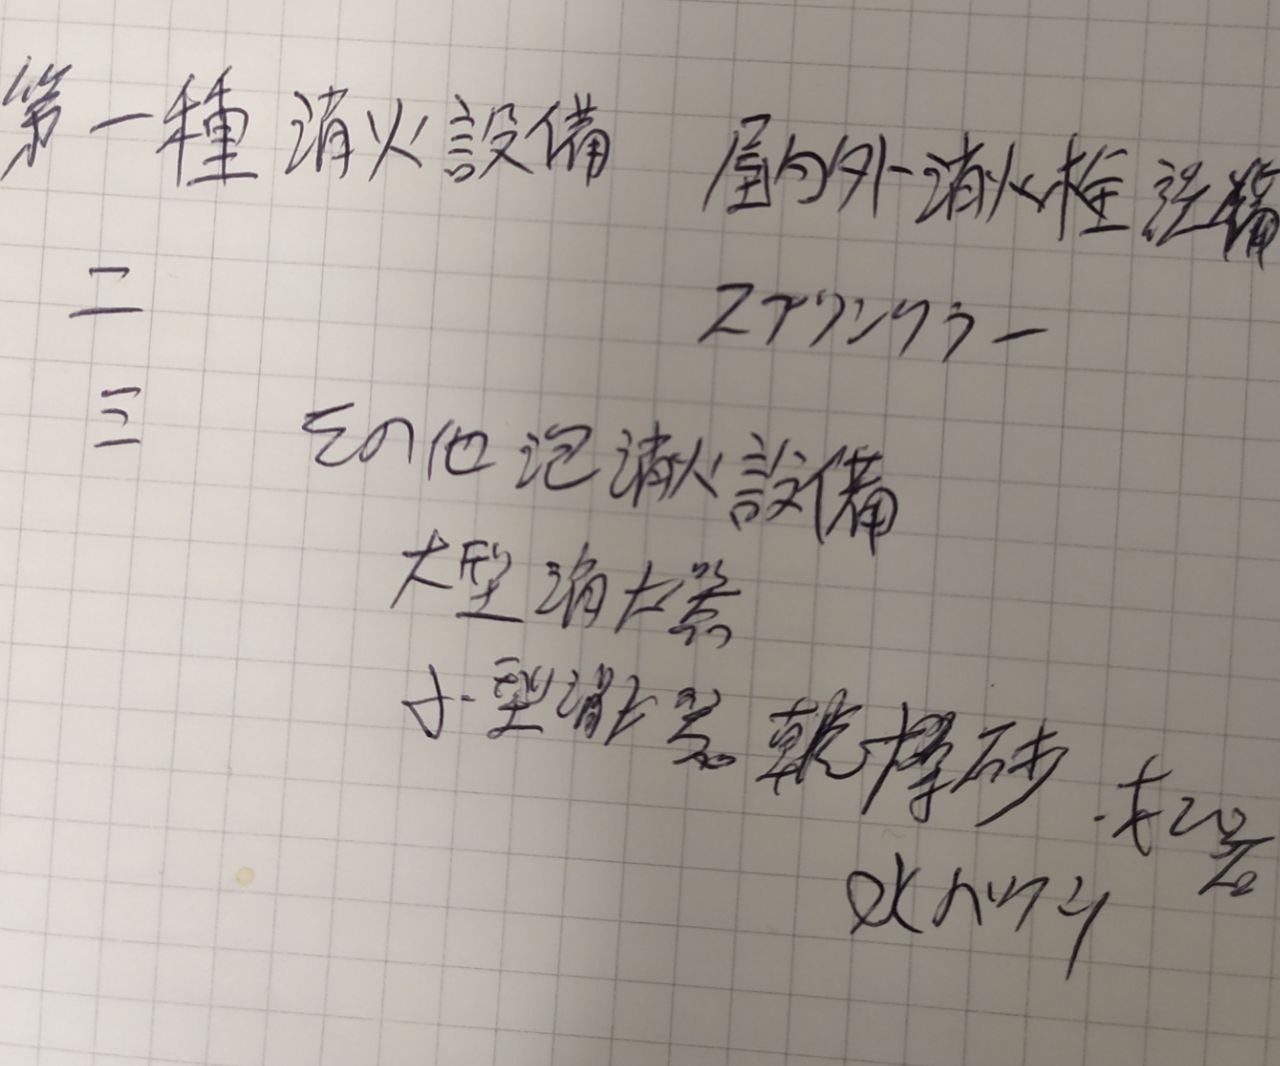 第一種 消火設備 屋内外消火栓設備
二 スプリンクラー
三 その他泡消火設備
大型消火器
小型消火器 乾燥砂
水バケツ